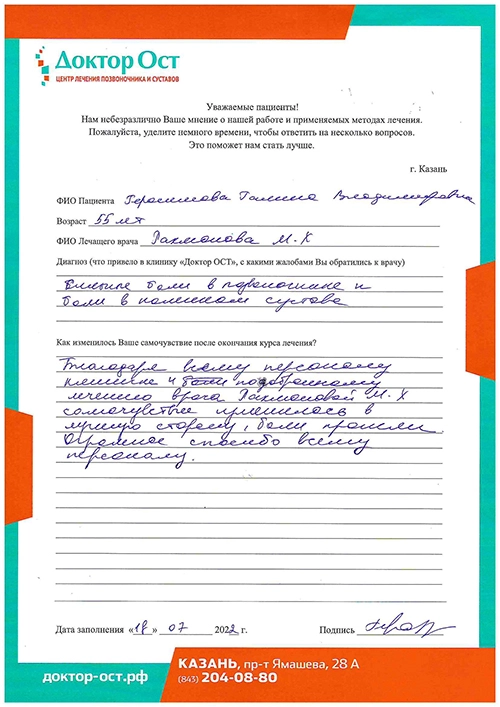 Доктор Ост
ЦЕНТР ЛЕЧЕНИЯ ПОЗВОНОЧНИКА И СУСТАВОВ
Уважаемые пациенты!
Нам небезразлично Ваше мнение о нашей работе и применяемых методах лечения.
Пожалуйста, уделите немного времени, чтобы ответить на несколько вопросов.
Это поможет нам стать лучше.
г. Казань
ФИО Пациента Герасимова Галина Владимировна
Возраст 55 лет
ФИО Лечащего врача Рахмонова М.Х
Диагноз (что привело в клинику «Доктор ОСТ», с какими жалобами Вы обратились к врачу)
Сильные боли в позвоночнике и
боли в коленном суставе
Как изменилось Ваше самочувствие после окончания курса лечения?
Благодаря всему персоналу
клиники и подобранному
лечению врача Рахмоновой М.Х
самочувствие изменилось в
лучшую сторону, боли прошли.
Огромное спасибо всему
персоналу.
Дата заполнения «18» 07 2022 г. Подпись
доктор-ост.рф
КАЗАНЬ, пр-т Ямашева, 28 А
(843) 204-08-80